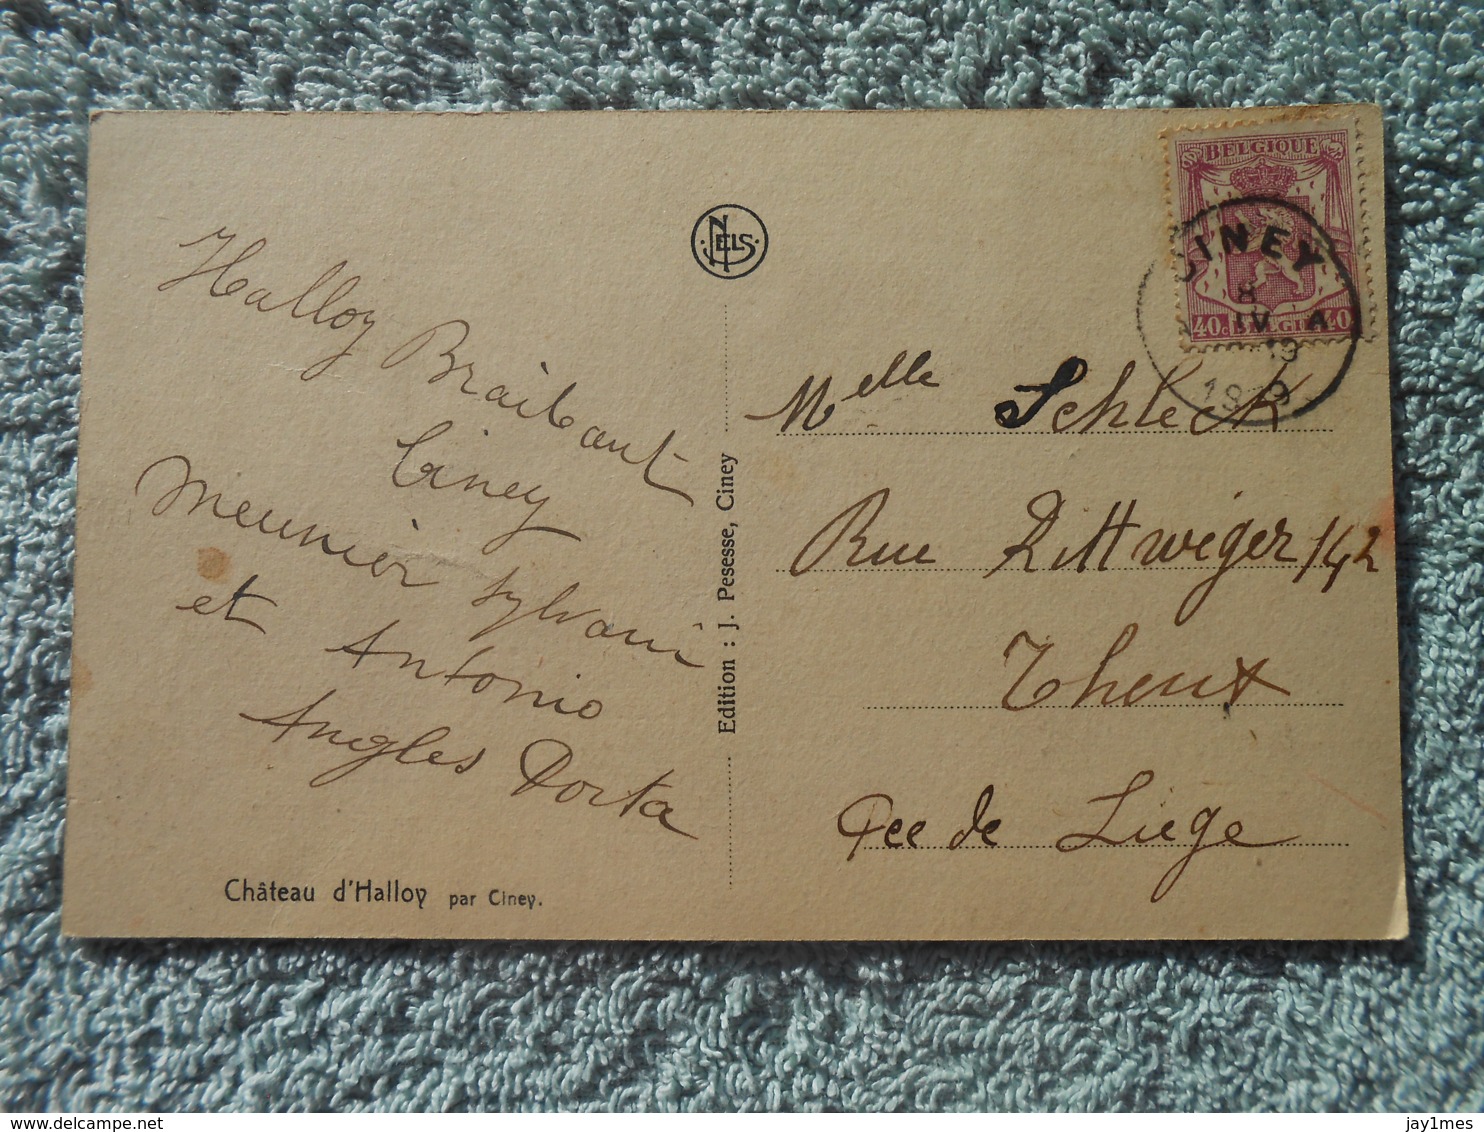 Halloy Braibant
Ciney
Meunier Sylvain
et Antonio
Angles Dorta
Château d'Halloy par Ciney.
NELS
Edition : J. Pesesse, Ciney
BELGIQUE
40c BELGIË 40
CINEY
8
IV A
19
Melle Schleck
Rue Rittwéger 142
Theux
Pce de Liège
delcampe.net
jay1mes